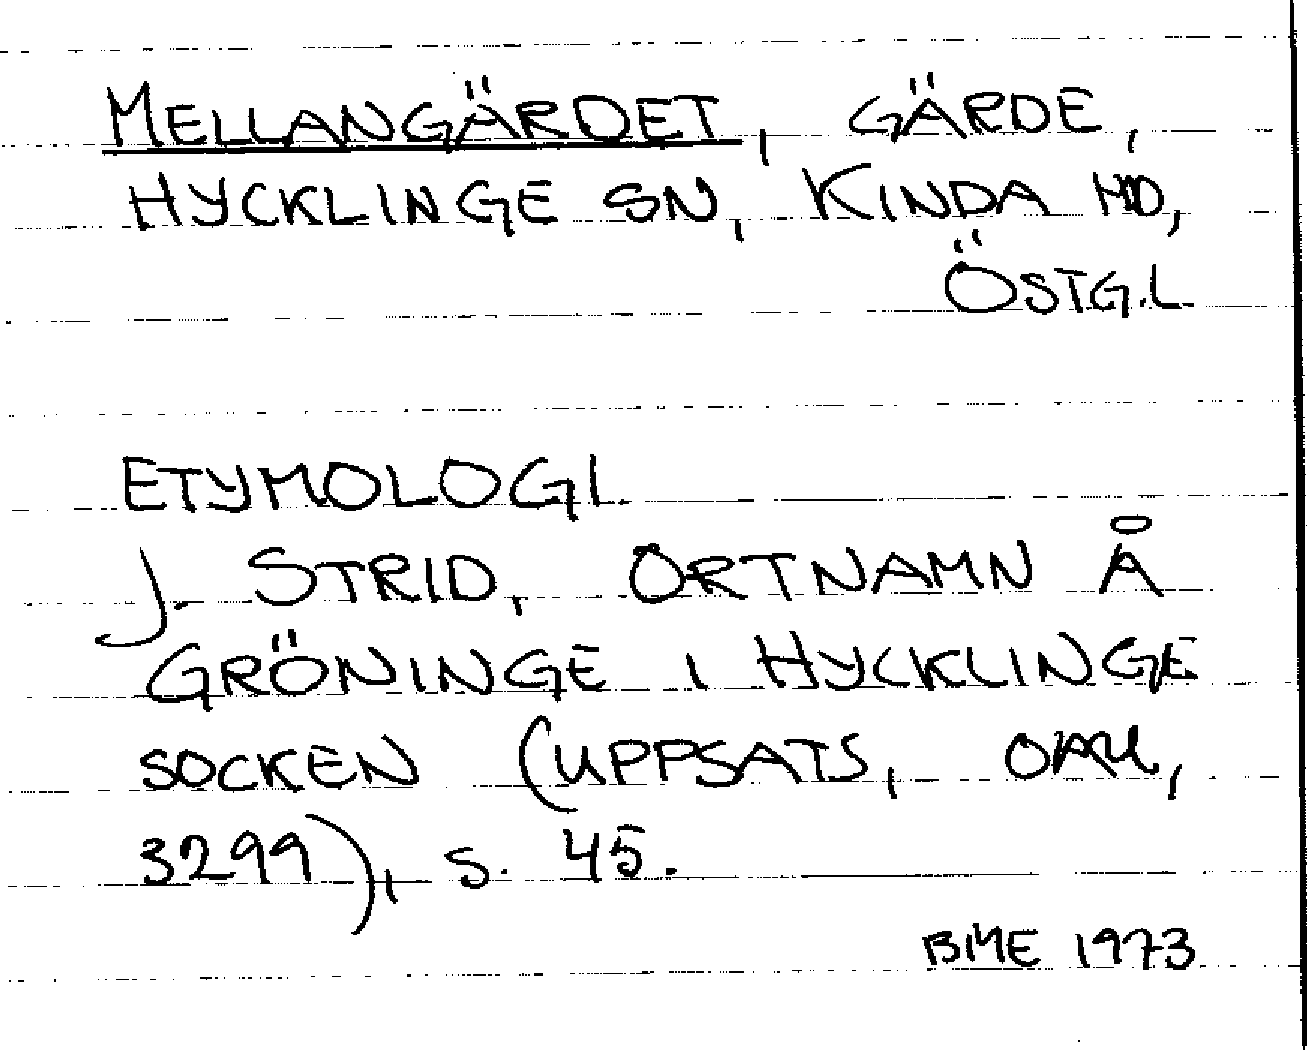 MELLANGÄRDET, GÄRDE,
HYCKLINGE SN, KINDA HD,
ÖSTG.L.
ETYMOLOGI.
J. STRID, ORTNAMN Å
GRÖNINGE I HYCKLINGE
SOCKEN (UPPSATS, OAU,
3299), S. 45.
BME 1973